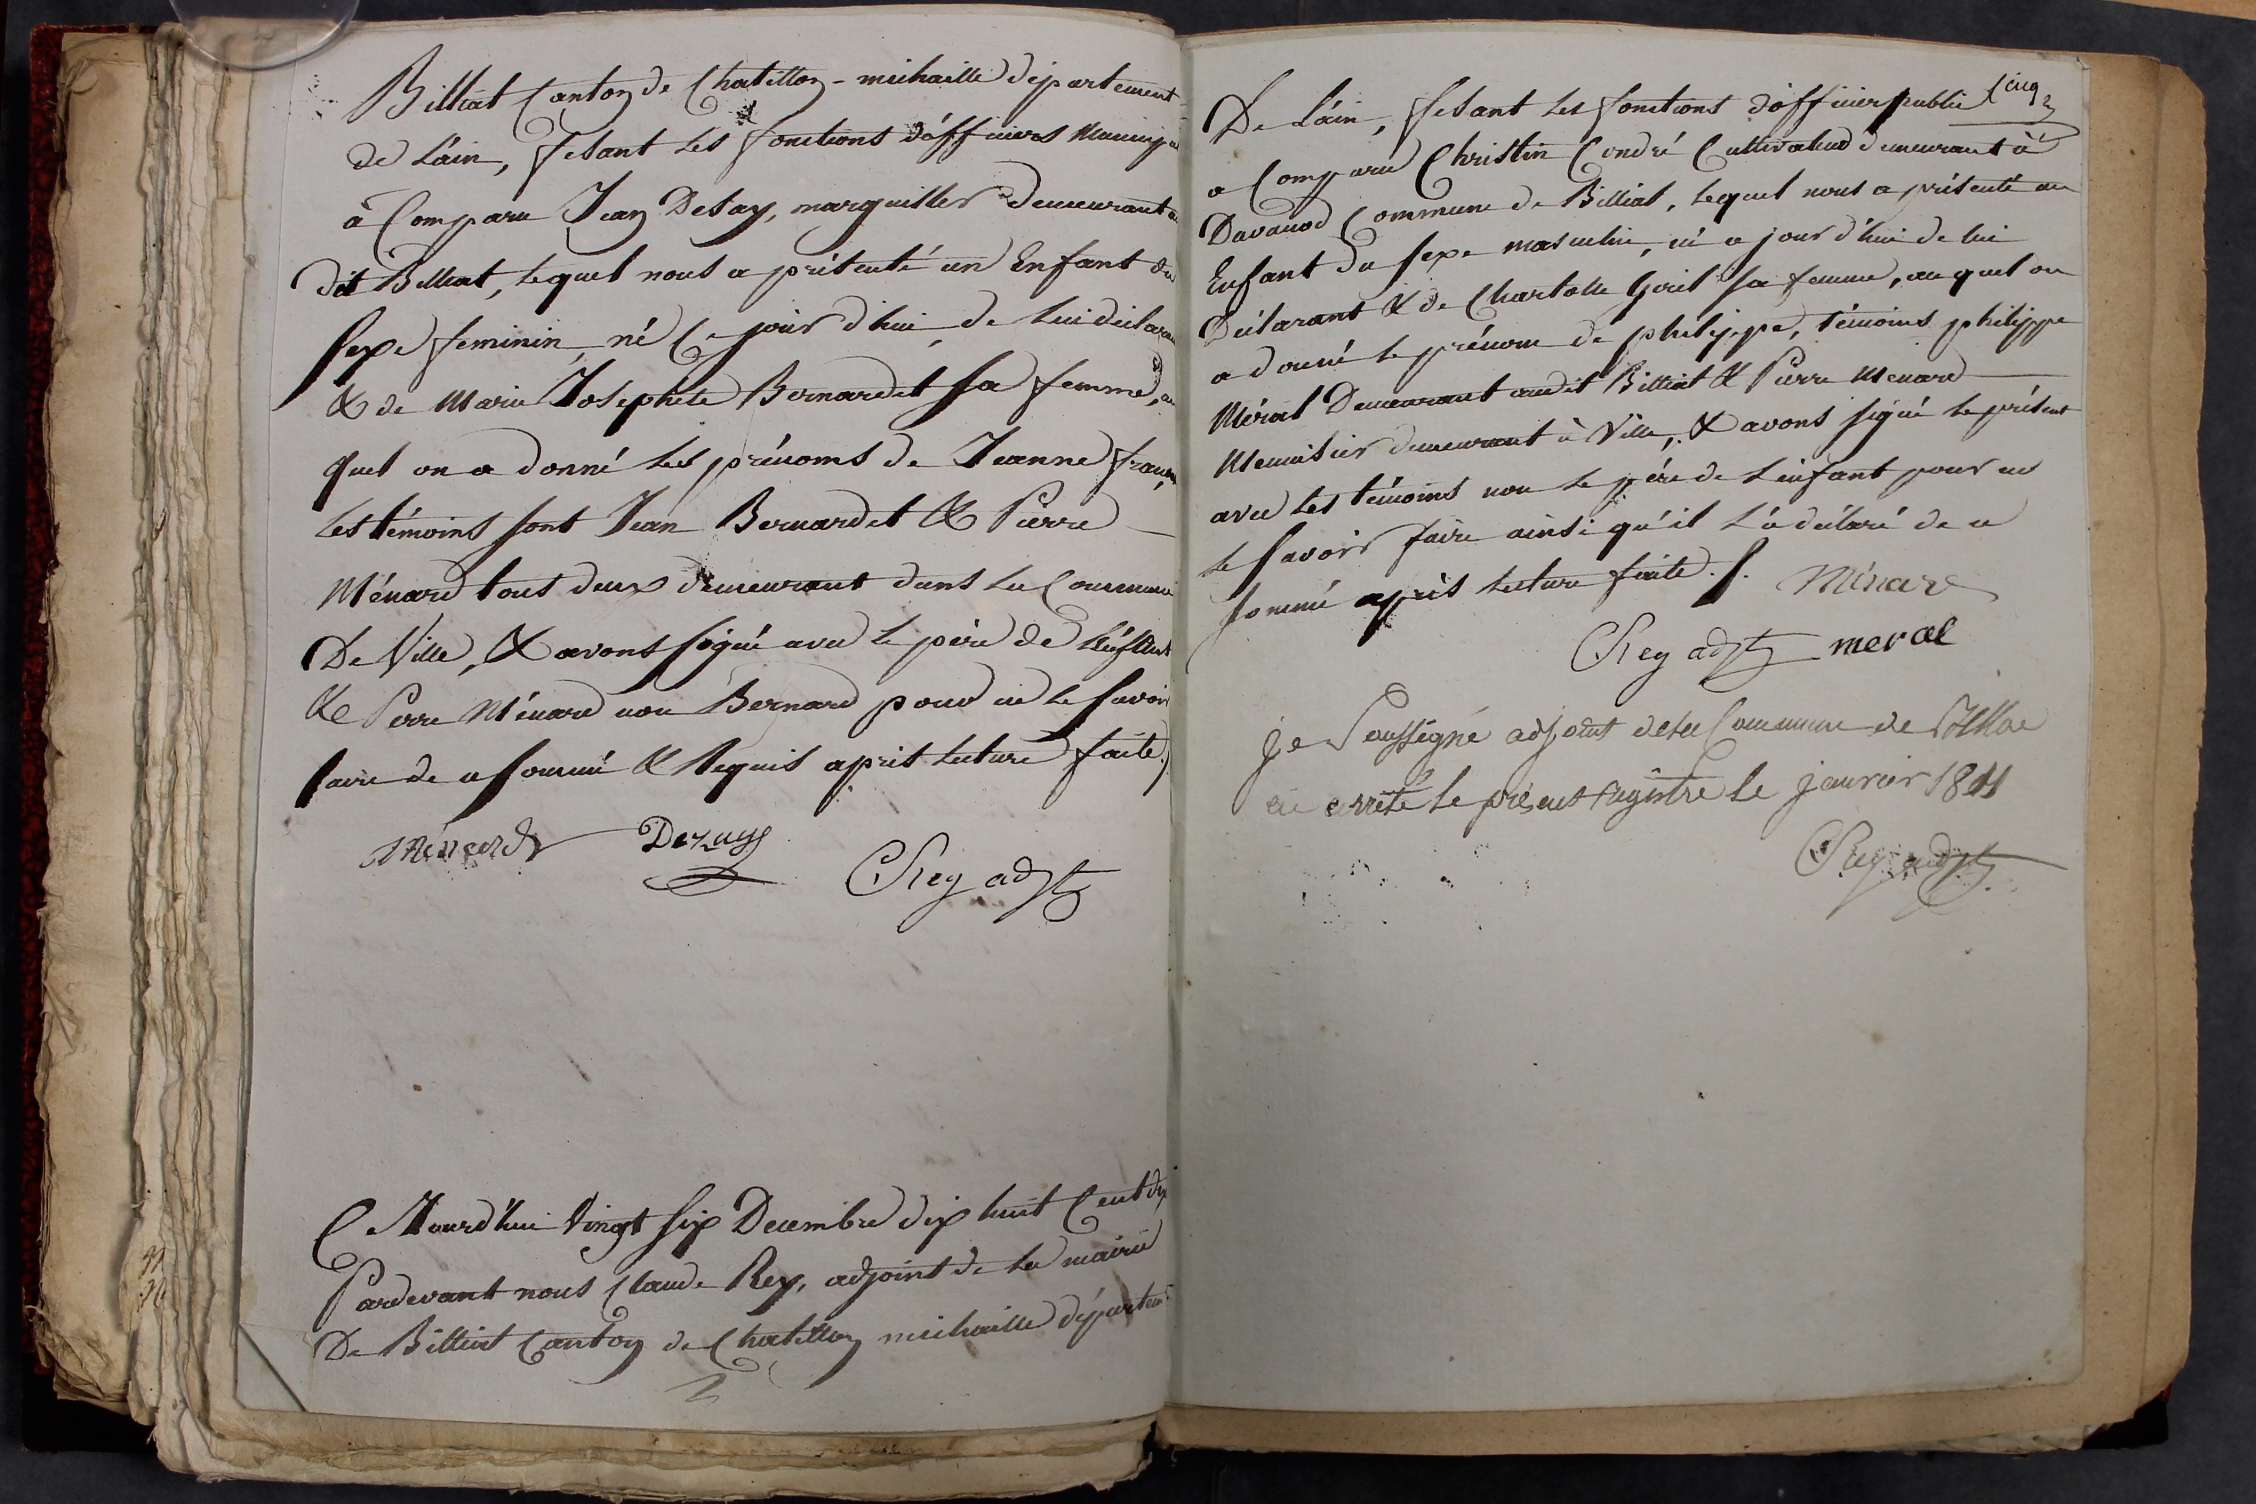 Billiat Canton de Chatillon-michaille département
de l'ain, fesant les fonctions d'officiers Municipa
a Comparu Jean Desay, marguiller demeurant a
dit Billiat, lequel nous a présenté un Enfant du
sexe feminin né Ce jour d'hui de lui declarant
& de Marie Josephte Bernardet sa femme, au
quel on a donné les prénoms de Jeanne
Les témoins sont Jean Bernardet & Pierre
Ménard tous deux demeurant dans la Commune
De Ville, & avons signé avec le père de
& Pierre Ménard non Bernard pour ne le savoir
faire de ce sommé & Requis après lecture faite
Ménard Dezay CRey adjt
Cejourd'hui vingt six Decembre dix huit Cent dix
Pardevant nous Claude Rey, adjoint de la mairie
De Billiat Canton de Chatillon michaille départem
De l'ain, fesant les fonctions d'officier public
a Comparu Christin Condré Cultivateur demeurant à
Davanod Commune de Billiat, lequel nous a présenté un
Enfant du sexe masculin, né ce jour d'hui de lui
Déclarant & de Charlotte sa femme, au quel on
a donné le prénom de philippe, témoins philippe
Méral Demeurant audit Billiat & Pierre Menard
Menuisier demeurant à Ville, & avons signé le présent
avec les témoins non le père de l'enfant pour ne
le savoir faire ainsi qu'il l'a déclaré de ce
sommé après lecture faite. Ménard
CRey adjt meral
je Soussigné adjoint de la Commune de
ai arrété le présent registre le janvier 1811
CRey adjt